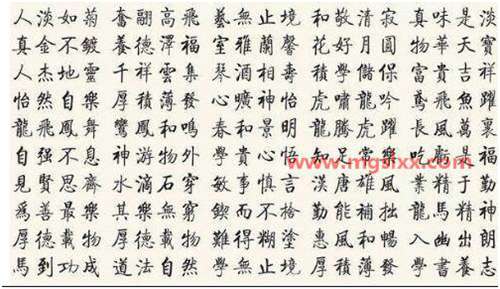 人淡如菊 奮翮高飛 藝無止境 和敬清寂 真味是淡
真金不鍍 養德澤福 室雅蘭馨 花好月圓 物華天寶
人杰地靈 千祥雲集 琴 相壽 積學儲 富貴吉祥
怡然自樂 厚積薄發 曠神怡 虎嘯龍吟 鳶飛魚躍
龍飛鳳舞 鸞鳳和鳴 春和景明 龍騰虎躍 長風萬裏
自強不息 神游物外 學貴心悟 知足常樂 吃虧是福
www.mgsixx.com
見賢思齊 水滴石穿 敏事慎言 漢唐雄風 業精于勤
爲善最樂 其樂無窮 鍥而不捨 勤能補拙 龍馬精神
厚德載物 厚德載物 難得糊塗 惠風和暢 入幽出朗
馬到功成 道法自然 學無止境 厚積薄發 學書養志